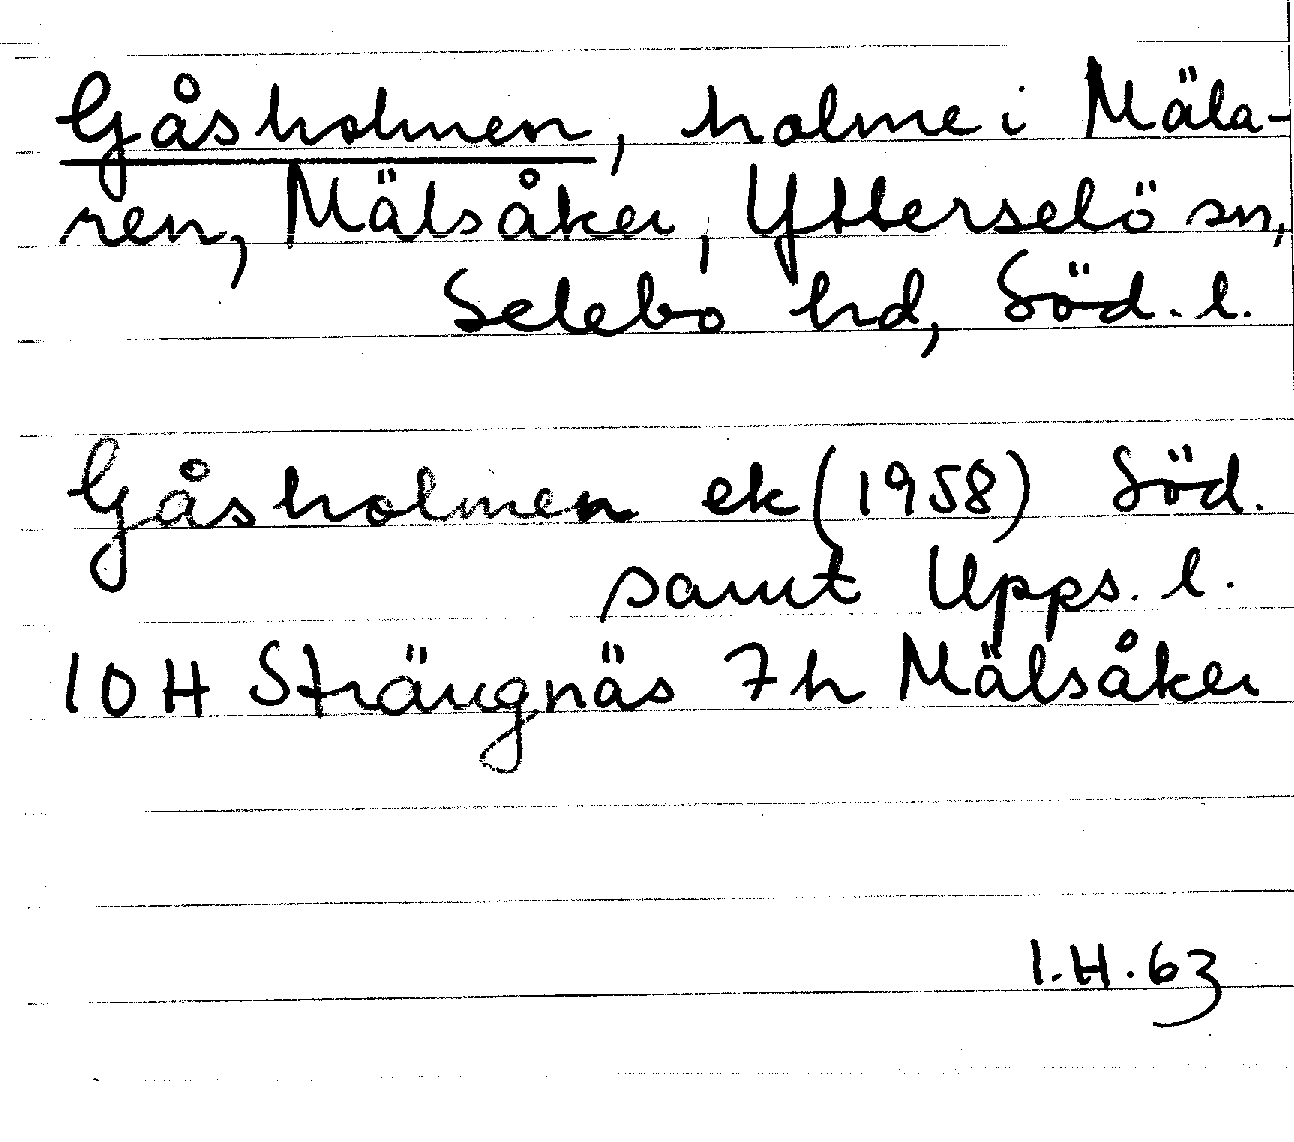 Gåsholmen, holme i Mäla-
ren, Mälsåker, Ytterselö sn,
Selebo hd, Söd. l.
Gåsholmen ek (1958) Söd.
samt Upps. l.
10H Strängnäs 7h Mälsåker
I.H. 63